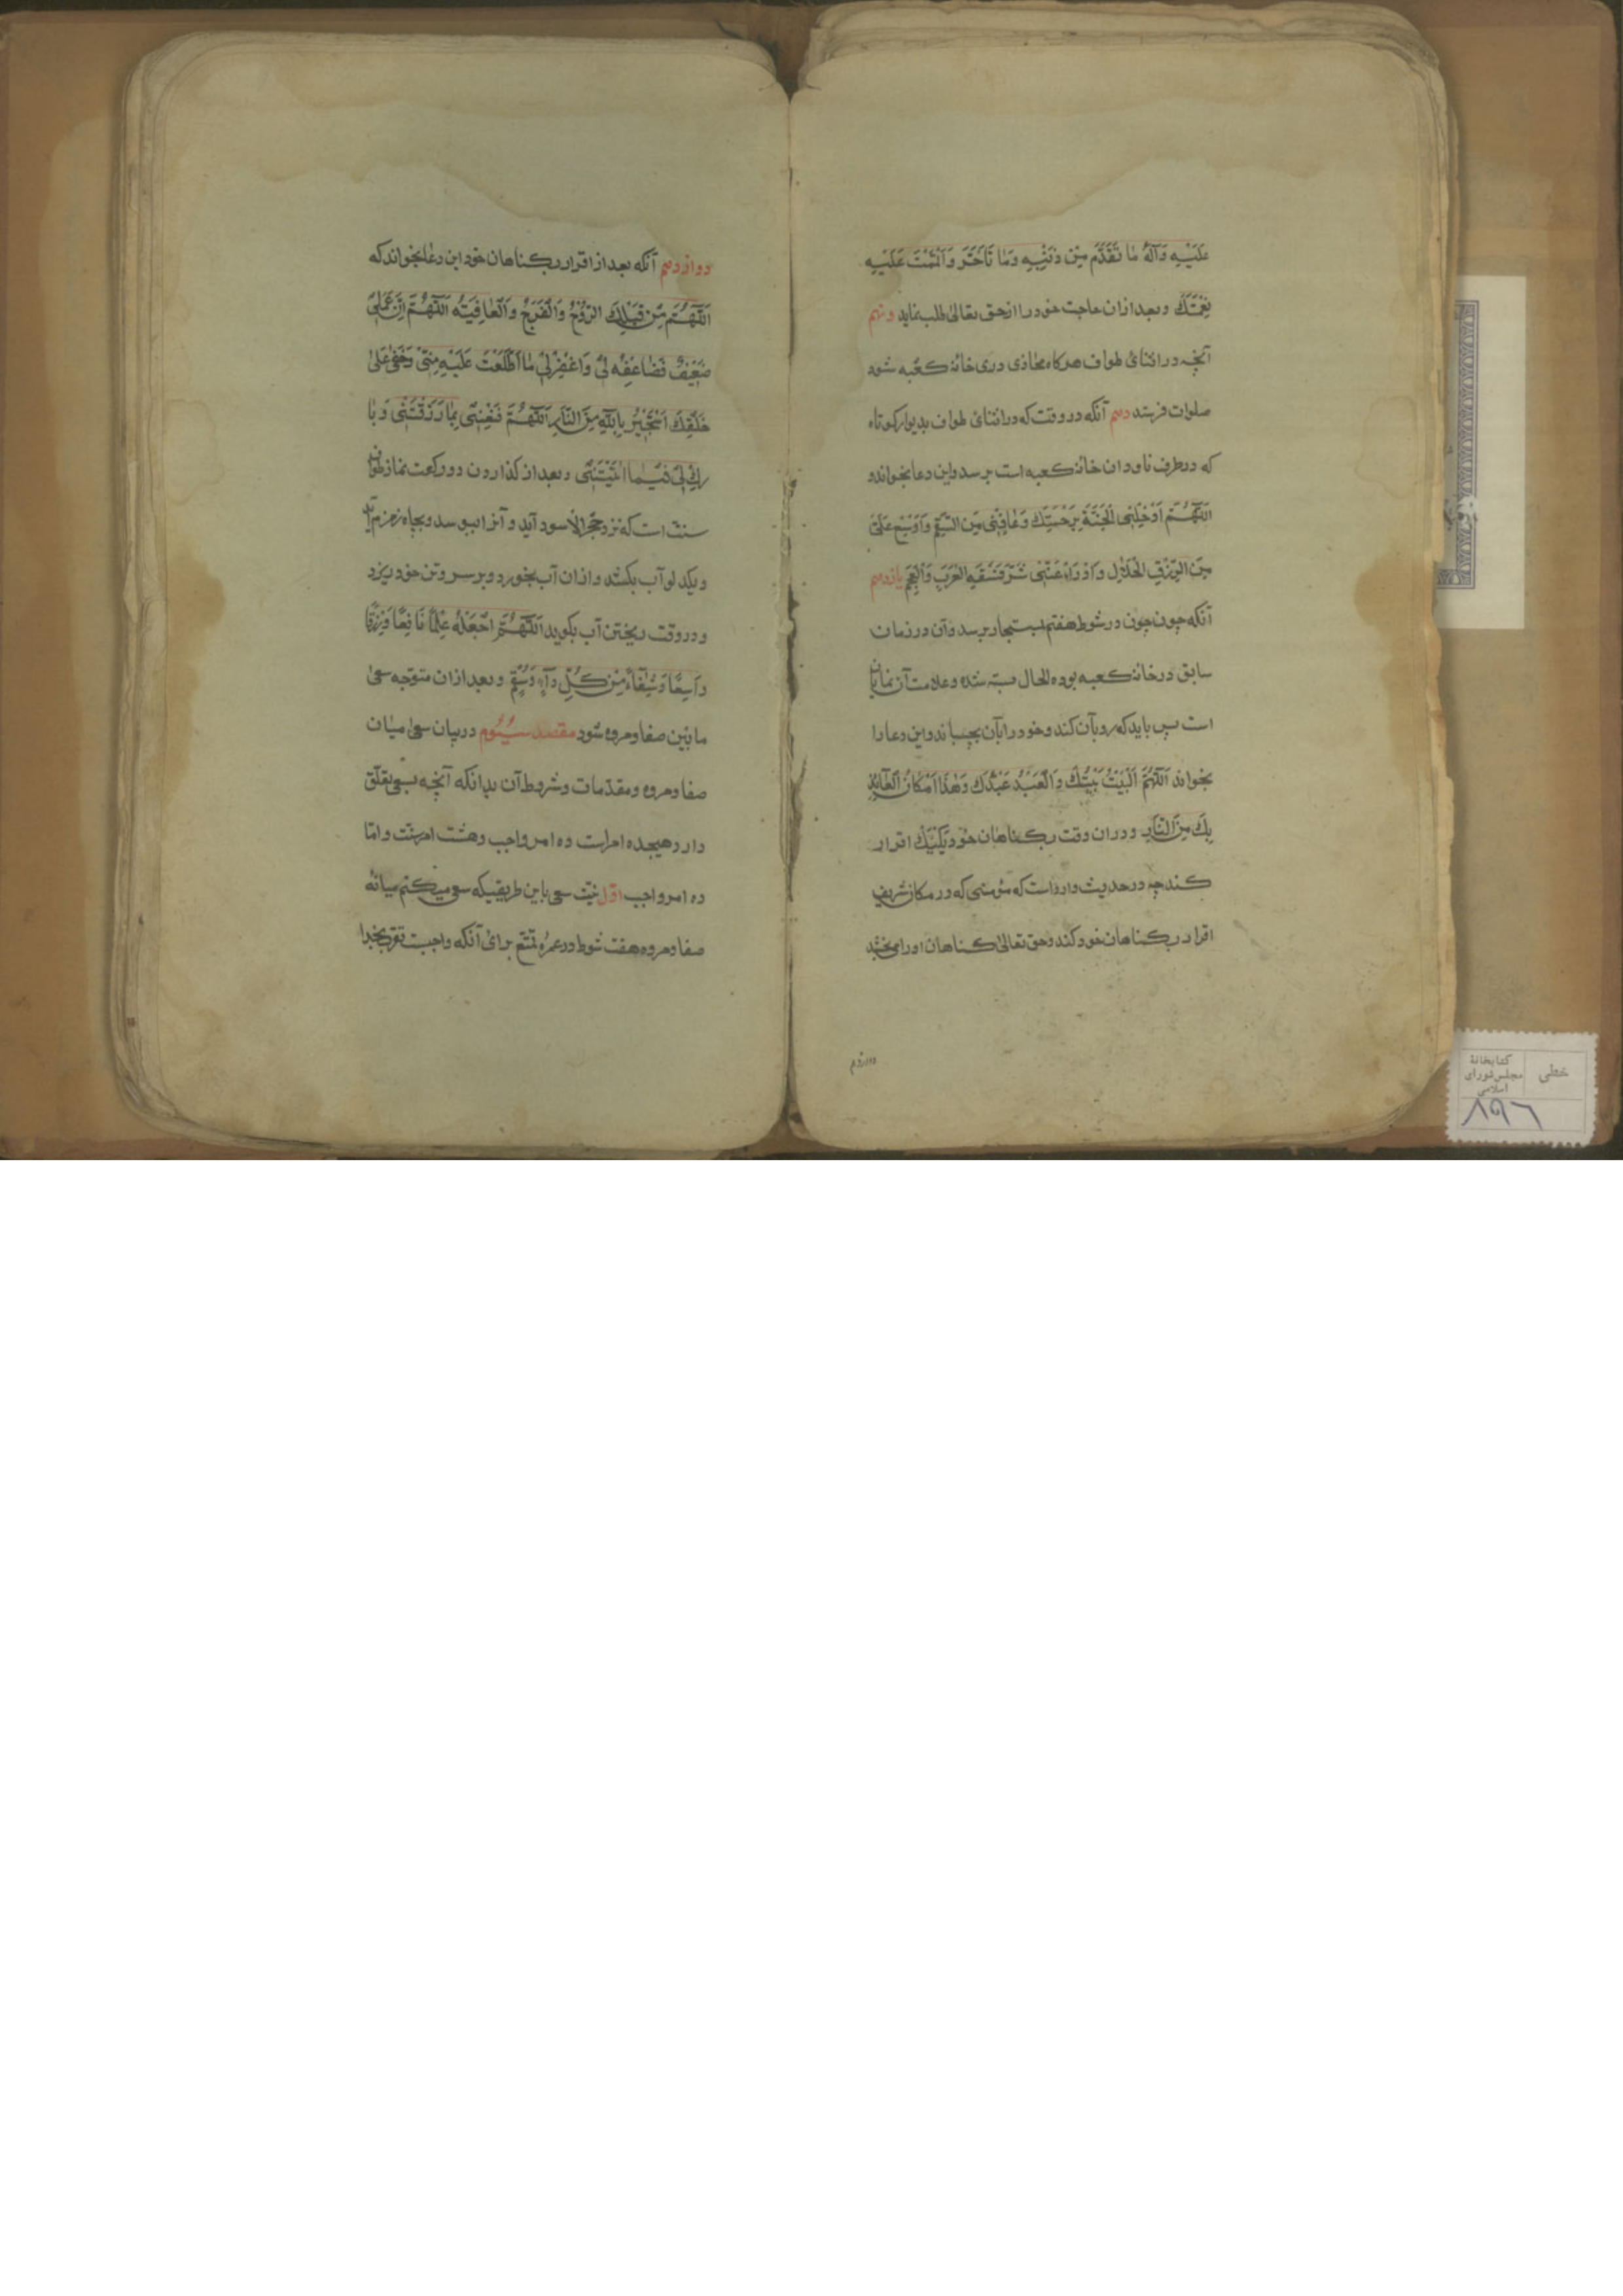 عَلَيْهِ وَآلِهِ مَا تَقَدَّمَ مِنْ ذَنْبِهِ وَمَا تَأَخَّرَ وَأَتْمَمْتَ عَلَيْهِ
نِعْمَتَكَ وبعد از ان حاجت خود را از حق تعالى طلب نمايد ونهم
آنچه در اثنائ طواف هر كاه محاذى درى خانۀ كعبه شود
صلوات فرستد دهم آنكه در وقت كه در اثنائ طواف بديوار كوتاه
كه در طرف ناودان خانۀ كعبه است برسد واين دعا بخواند و
اَللّٰهُمَّ اَدْخِلْنِى الْجَنَّةَ بِرَحْمَتِكَ وَعَافِنِى مِنَ السُّقْمِ وَاَوْسِعْ عَلَىَّ
مِنَ الرِّزْقِ الْحَلَالِ وَادْرَاْ عَنِّى شَرَّ فَسَقَةِ الْعَرَبِ وَالْعَجَمِ يازدهم
آنكه چون چون در شوط هفتم بمستجار برسد وآن در زمان
سابق در خانۀ كعبه بوده الحال بسته شده وعلامت آن نمايان
است پس بايد كه رو بآن كند وخود را بآن بچسباند واين دعا را
بخواند اَللّٰهُمَّ اَلْبَيْتُ بَيْتُكَ وَالْعَبْدُ عَبْدُكَ وَهٰذَا مَكَانُ الْعَائِذِ
بِكَ مِنَ النَّارِ ودر ان وقت بكناهان خود يَكْيَكْ اقرار
كند چه در حديث وارد است كه مؤمنى كه در مكان شريف
اقرار بكناهان خود كند وحق تعالى كناهان او را مى بخشد
دوازدهم
دوازدهم آنكه بعد از اقرار بكناهان خود اين دعا بخواند كه
اَللّٰهُمَّ مِنْ قِبَلِكَ الرَّوْحُ وَالْفَرَجُ وَالْعَافِيَتُه اَللّٰهُمَّ اِنَّ عَمَلِىْ
ضَعِيْفٌ فَضَاعِفْهُ لِىْ وَاغْفِرْ لِىْ مَا اطَّلَعْتَ عَلَيْهِ مِنِّىْ وَخَفِىَ عَلىٰ
خَلْقِكَ اَسْتَجِيْرُ بِاللّٰهِ مِنَ النَّارِ اَللّٰهُمَّ قَنِّعْنِى بِمَا رَزَقْتَنِى وَبَا
رِكْ لِىْ فِيْمَا اٰتَيْتَنِى وبعد از كذاردن دو ركعت نماز طواف
سنت است كه نزد حجر الاسود آيد و آنرا ببوسد وبچاه زمزم آيد
ويكدلو آب بكشد و از ان آب بخورد وبر سر وتن خود ريزد
ودر وقت ريختن آب بكويد اَللّٰهُمَّ اجْعَلْهُ عِلْمًا نَافِعًا وَرِزْقًا
وَاسِعًا وَشِفَاءً مِنْ كُلِّ دَآءٍ وَسُقْمٍ وبعد از ان متوجه سعى
مابين صفا ومروه شود مقصد سيُّوم در بيان سعى ميان
صفا ومروه ومقدّمات وشروط آن بدانكه آنچه بسعى تعلّق
دارد هيجده امر است ده امر واجب وهشت امر سنت و امّا
ده امر واجب اوّل نيّت سعى باين طريقيكه سعى ميكنم ميانۀ
صفا ومروه هفت شوط در عمرۀ تمتّع براى آنكه واجبست تقرّب بخدا
خطى
كتابخانۀ
مجلس شوراى
اسلامى
۸۹۶